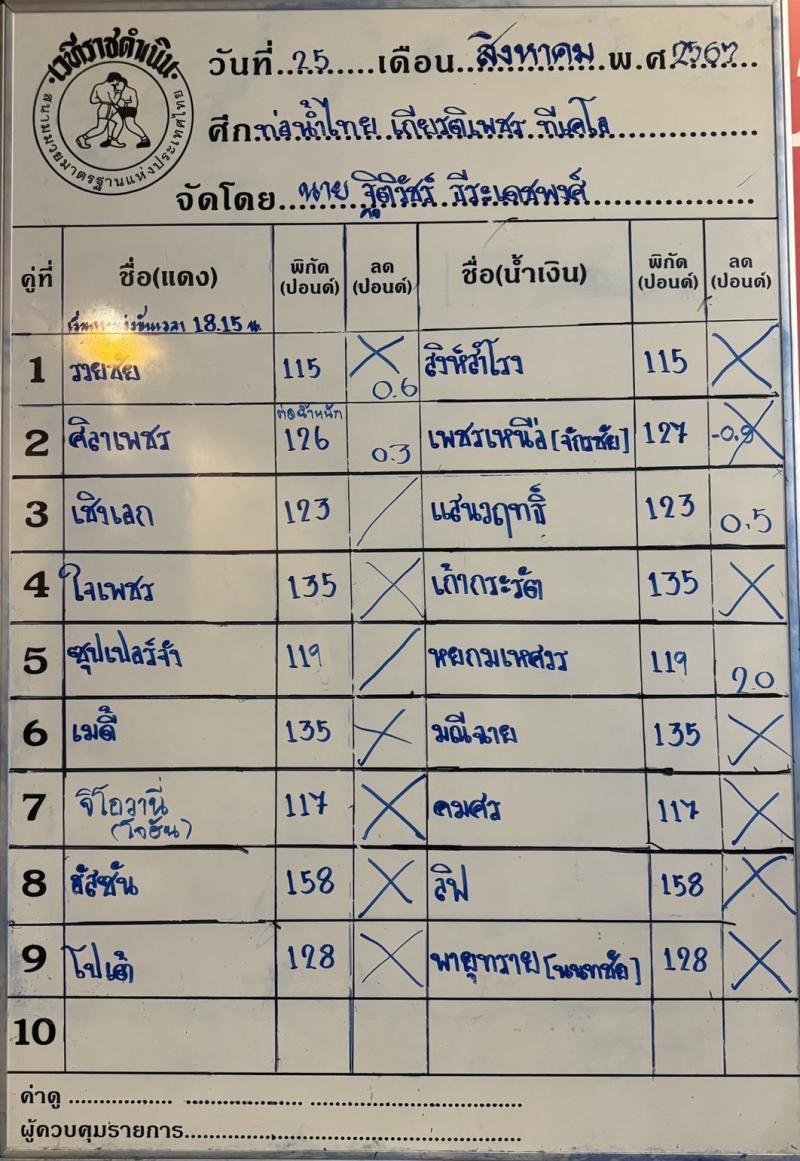 เวทีราชดำเนิน
สนามมวยมาตรฐานแห่งประเทศไทย
วันที่..25.....เดือน..สิงหาคม..พ.ศ.2567
ศึก.ท่อน้ำไทย เกียรติเพชร ทีเคโอ
จัดโดย...นาย ฐิติวัชร์ ธีระเดชพงศ์
คู่ที่ ชื่อ(แดง) พิกัด (ปอนด์) ลด (ปอนด์) ชื่อ(น้ำเงิน) พิกัด (ปอนด์) ลด (ปอนด์)
18.15 น.
1 รวยชัย 115 0.6 สิงห์สำโรง 115
ต่อน้ำหนัก
2 ศิลาเพชร 126 0.3 เพชรเหนือ [จักรชัย] 127 -0.9
3 เชิงเลก 123 แสนวฤทธิ์ 123 0.5
4 ใจเพชร 135 เก้ากะรัต 135
5 ซุปเปอร์จ๋า 119 หยกมเหศวร 119 2.0
6 เมดี้ 135 มณีฉาย 135
7 จิโอวานี่ 117 คมศร 117
(โจฮัน)
8 ฮัสซัน 158 ลิฟ 158
9 โปเต้ 128 พายุทราย [นนทชัย] 128
10
ค่าดู ..................
ผู้ควบคุมรายการ..................